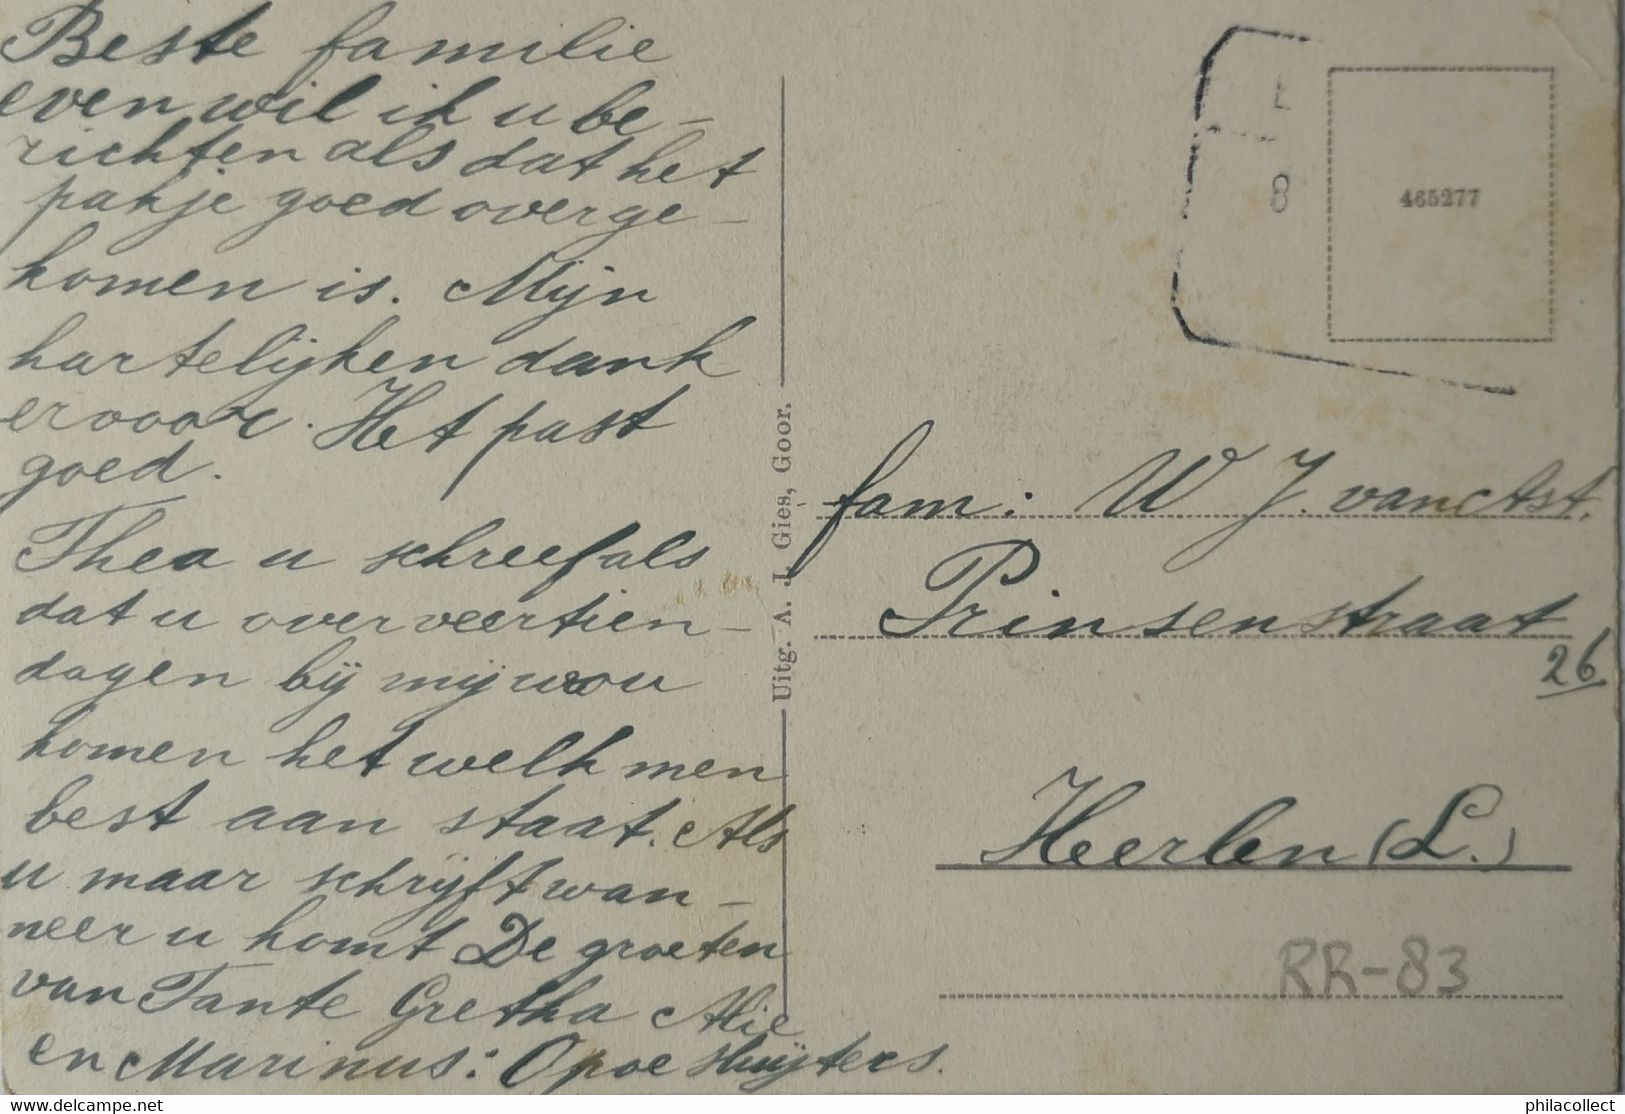 Beste familie
even wil ik u be-
richten als dat het
pakje goed overge-
komen is. Mijn
hartelijken dank
ervoor. Het past
goed.
Thea u schreef als
dat u over veertien-
dagen bij mij wou
komen het welk men
best aan staat. Als
u maar schrijft wan-
neer u komt De groeten
van Tante Gretha Alie
en Marinus: Opoe Huijters.
Uitg. A. J. Gies, Goor.
8
465277
fam: W J. van Ast.
Prinsenstraat
26
Heerlen (L.)
RR-83
philacollect